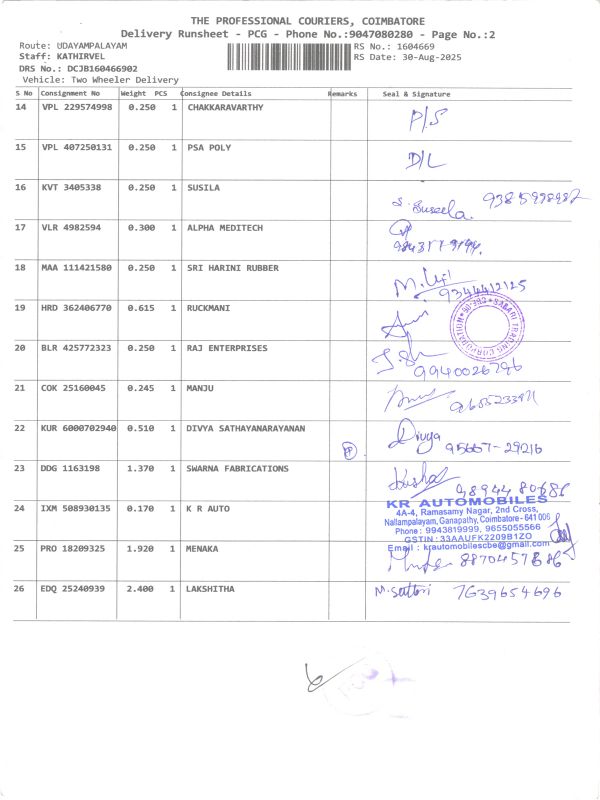 THE PROFESSIONAL COURIERS, COIMBATORE
Delivery Runsheet - PCG - Phone No.:9047080280 - Page No.:2
Route: UDAYAMPALAYAM RS No.: 1604669
Staff: KATHIRVEL RS Date: 30-Aug-2025
DRS No.: DCJB160466902
Vehicle: Two Wheeler Delivery
S No Consignment No Weight PCS Consignee Details Remarks Seal & Signature
14 VPL 229574998 0.250 1 CHAKKARAVARTHY P/S
15 VPL 407250131 0.250 1 PSA POLY D/L
16 KVT 3405338 0.250 1 SUSILA S. Suseela.
17 VLR 4982594 0.300 1 ALPHA MEDITECH
18 MAA 111421580 0.250 1 SRI HARINI RUBBER 9344412125
19 HRD 362406770 0.615 1 RUCKMANI
SABARI TRADING CORPORATION
20 BLR 425772323 0.250 1 RAJ ENTERPRISES 9940026796
21 COK 25160045 0.245 1 MANJU
22 KUR 6000702940 0.510 1 DIVYA SATHAYANARAYANAN Divya 95667-29216
23 DDG 1163198 1.370 1 SWARNA FABRICATIONS 9894480686
24 IXM 508930135 0.170 1 K R AUTO
KR AUTOMOBILES
4A-4, Ramasamy Nagar, 2nd Cross,
Nallampalayam, Ganapathy, Coimbatore - 641 006
Phone : 9943819999, 9655055566
GSTIN : 33AAUFK2209B1ZO
Email : krautomobilescbe@gmail.com
25 PRO 18209325 1.920 1 MENAKA 8870457686
26 EDQ 25240939 2.400 1 LAKSHITHA 7639654696